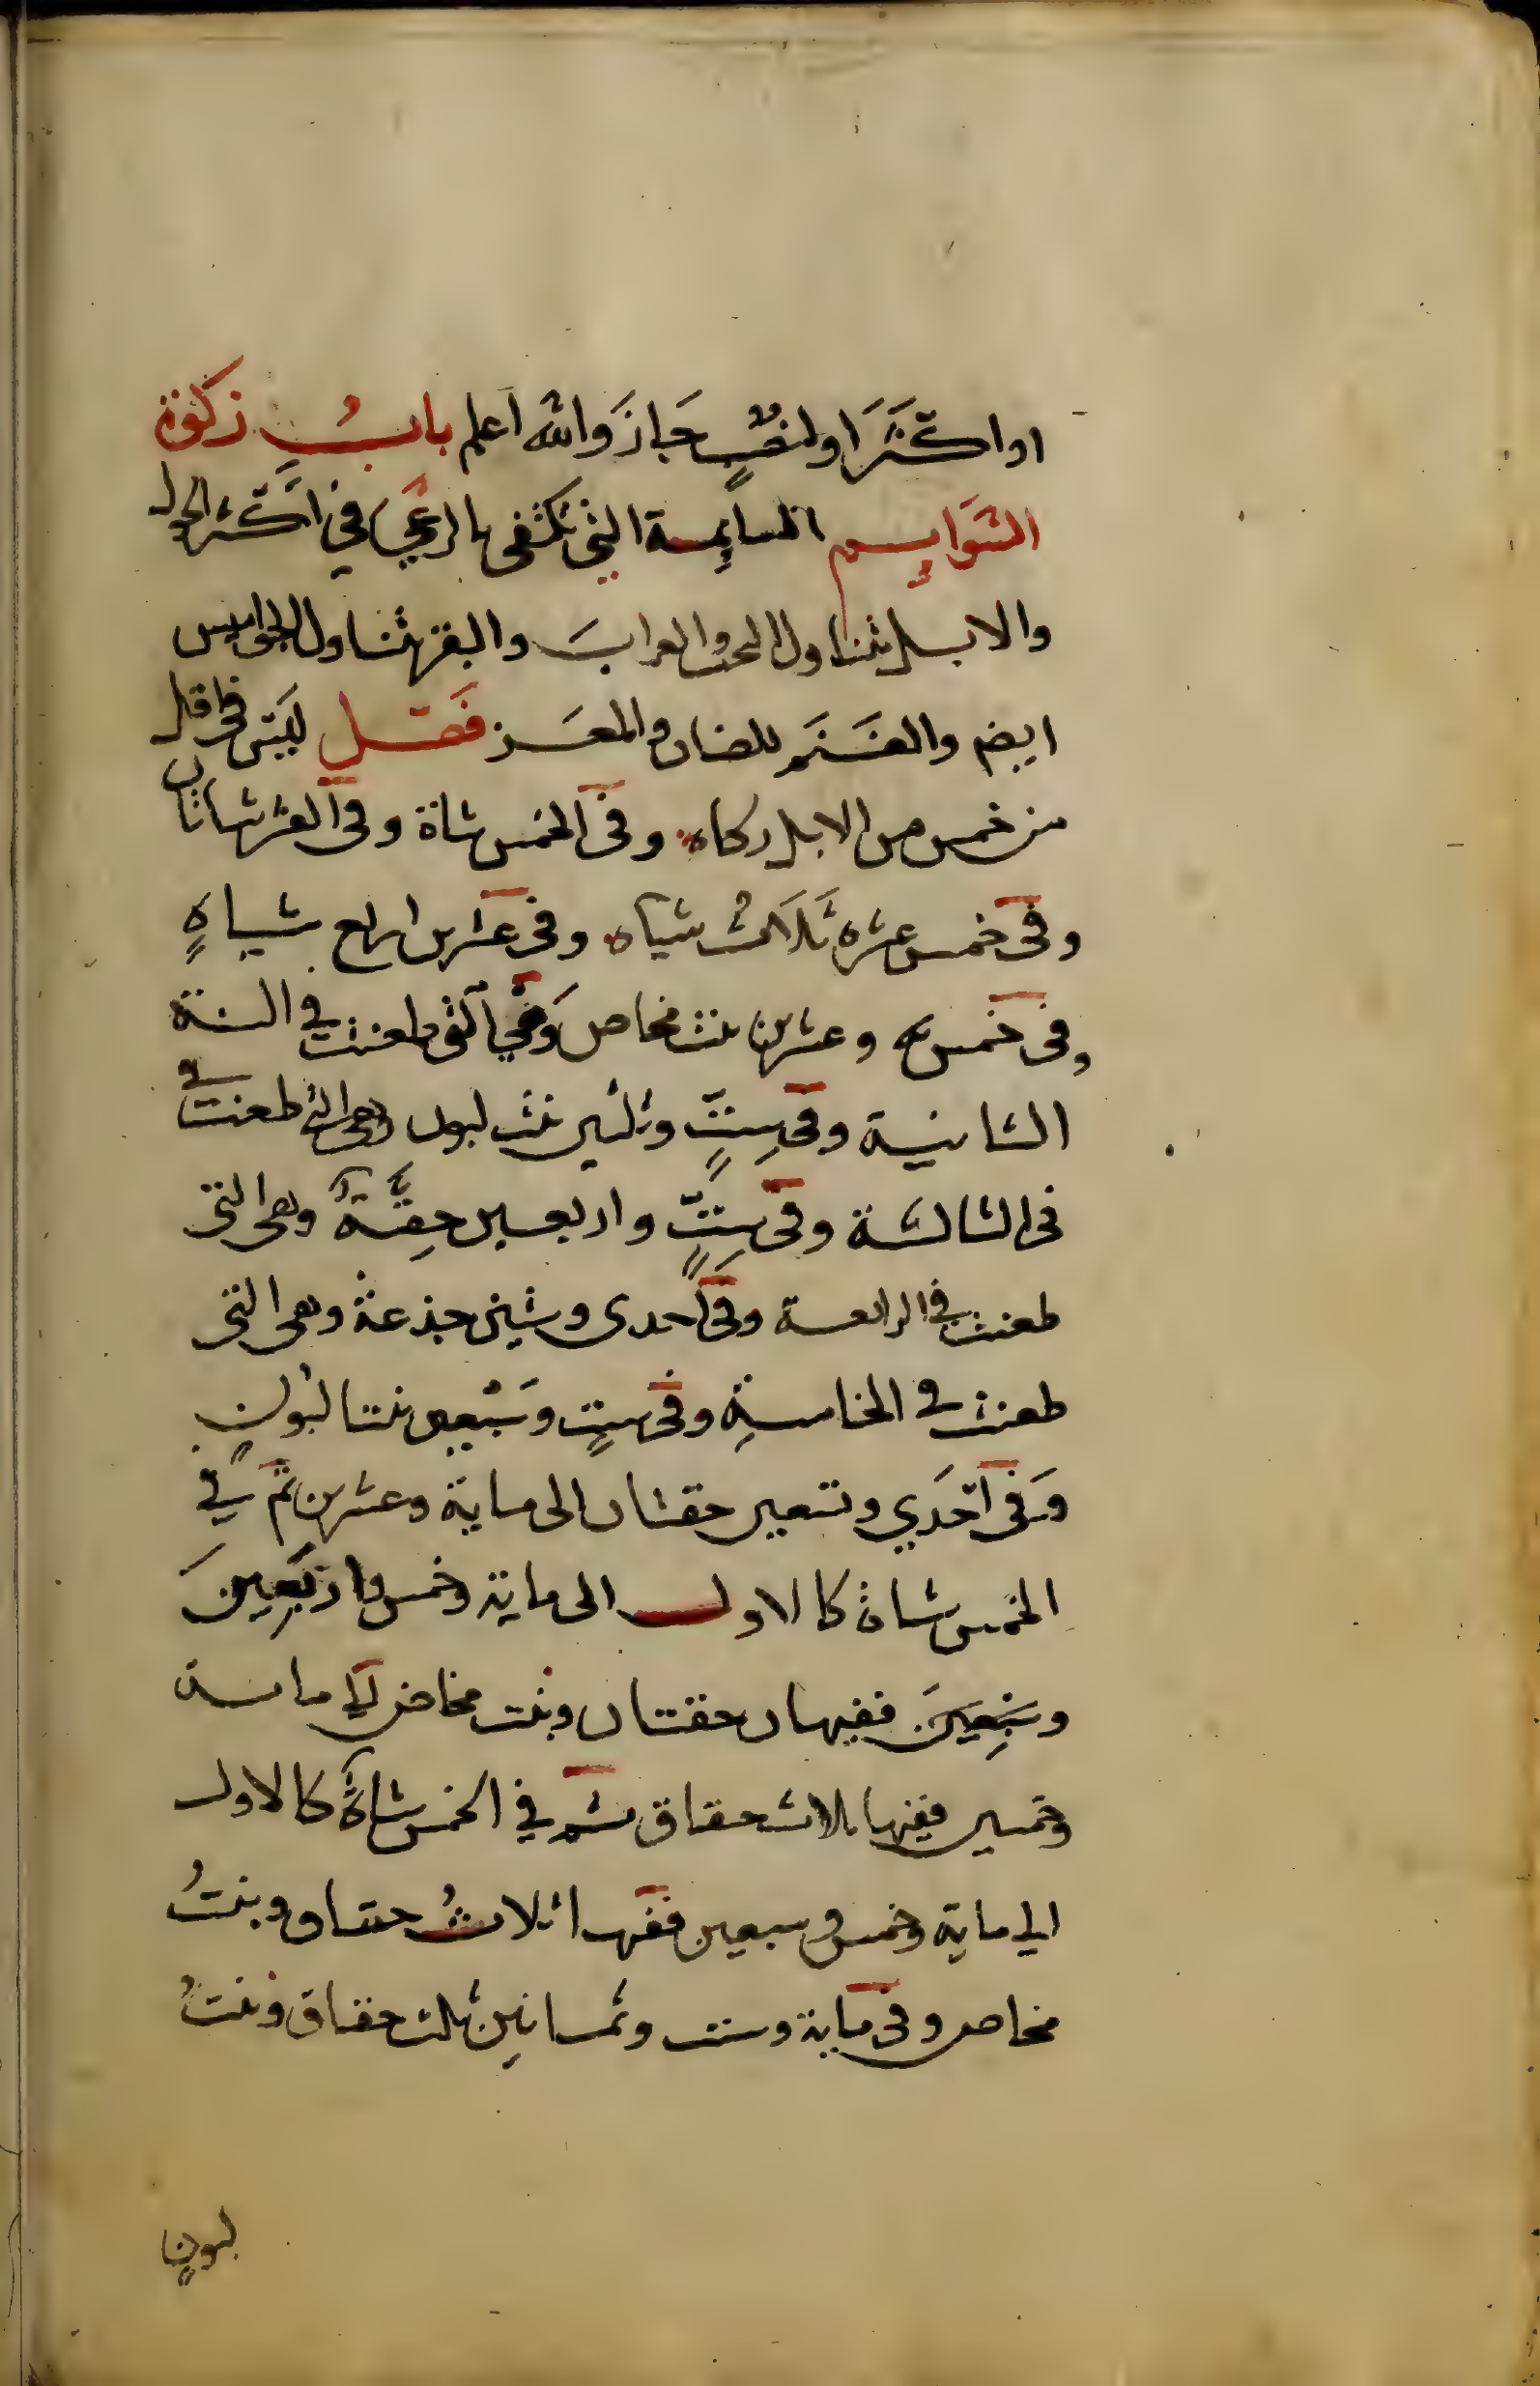 او اكثر اولنصب جاز والله اعلم باب زكوة
السوايم السايمة التي تكتفى بالرعي في اكثر الحول
والابل يتناول البخت والعراب والبقر يتناول الجواميس
ايضم والغنم للضان والمعز فصل ليس في اقل
من خمس من الابل زكاه وفى الخمس شاة وفى العشر شاتان
وفى خمس عشره ثلاث شياه وفى عشرين اربع شياه
وفى خمس وعشرين بنت مخاض وهي التى طعنت في السنة
الثانية وفى ست وثلثين بنت لبون وهى التى طعنت في
فى الثالثة وفى ست واربعين حقة وهى التى
طعنت في الرابعة وفى احدى وستين جذعة وهى التى
طعنت في الخامسة وفى ست وسبعين بنتا لبون
وفى احدي وتسعين حقتان الى ماية وعشرين ثم في
الخمس شاة كالاول الى ماية وخمس واربعين
ففيها حقتان وبنت مخاض الى ماية
وخمسين ففيها ثلاث حقاق ثم في الخمس شاة كالاول
الى ماية وخمس وسبعين ففيها ثلاث حقاق وبنت
مخاض وفى ماية وست وثمانين ثلث حقاق وبنت
لبون